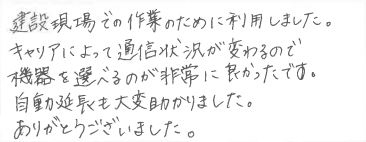 建設現場での作業のために利用しました。
キャリアによって通信状況が変わるので
機器を選べるのが非常に良かったです。
自動延長も大変助かりました。
ありがとうございました。